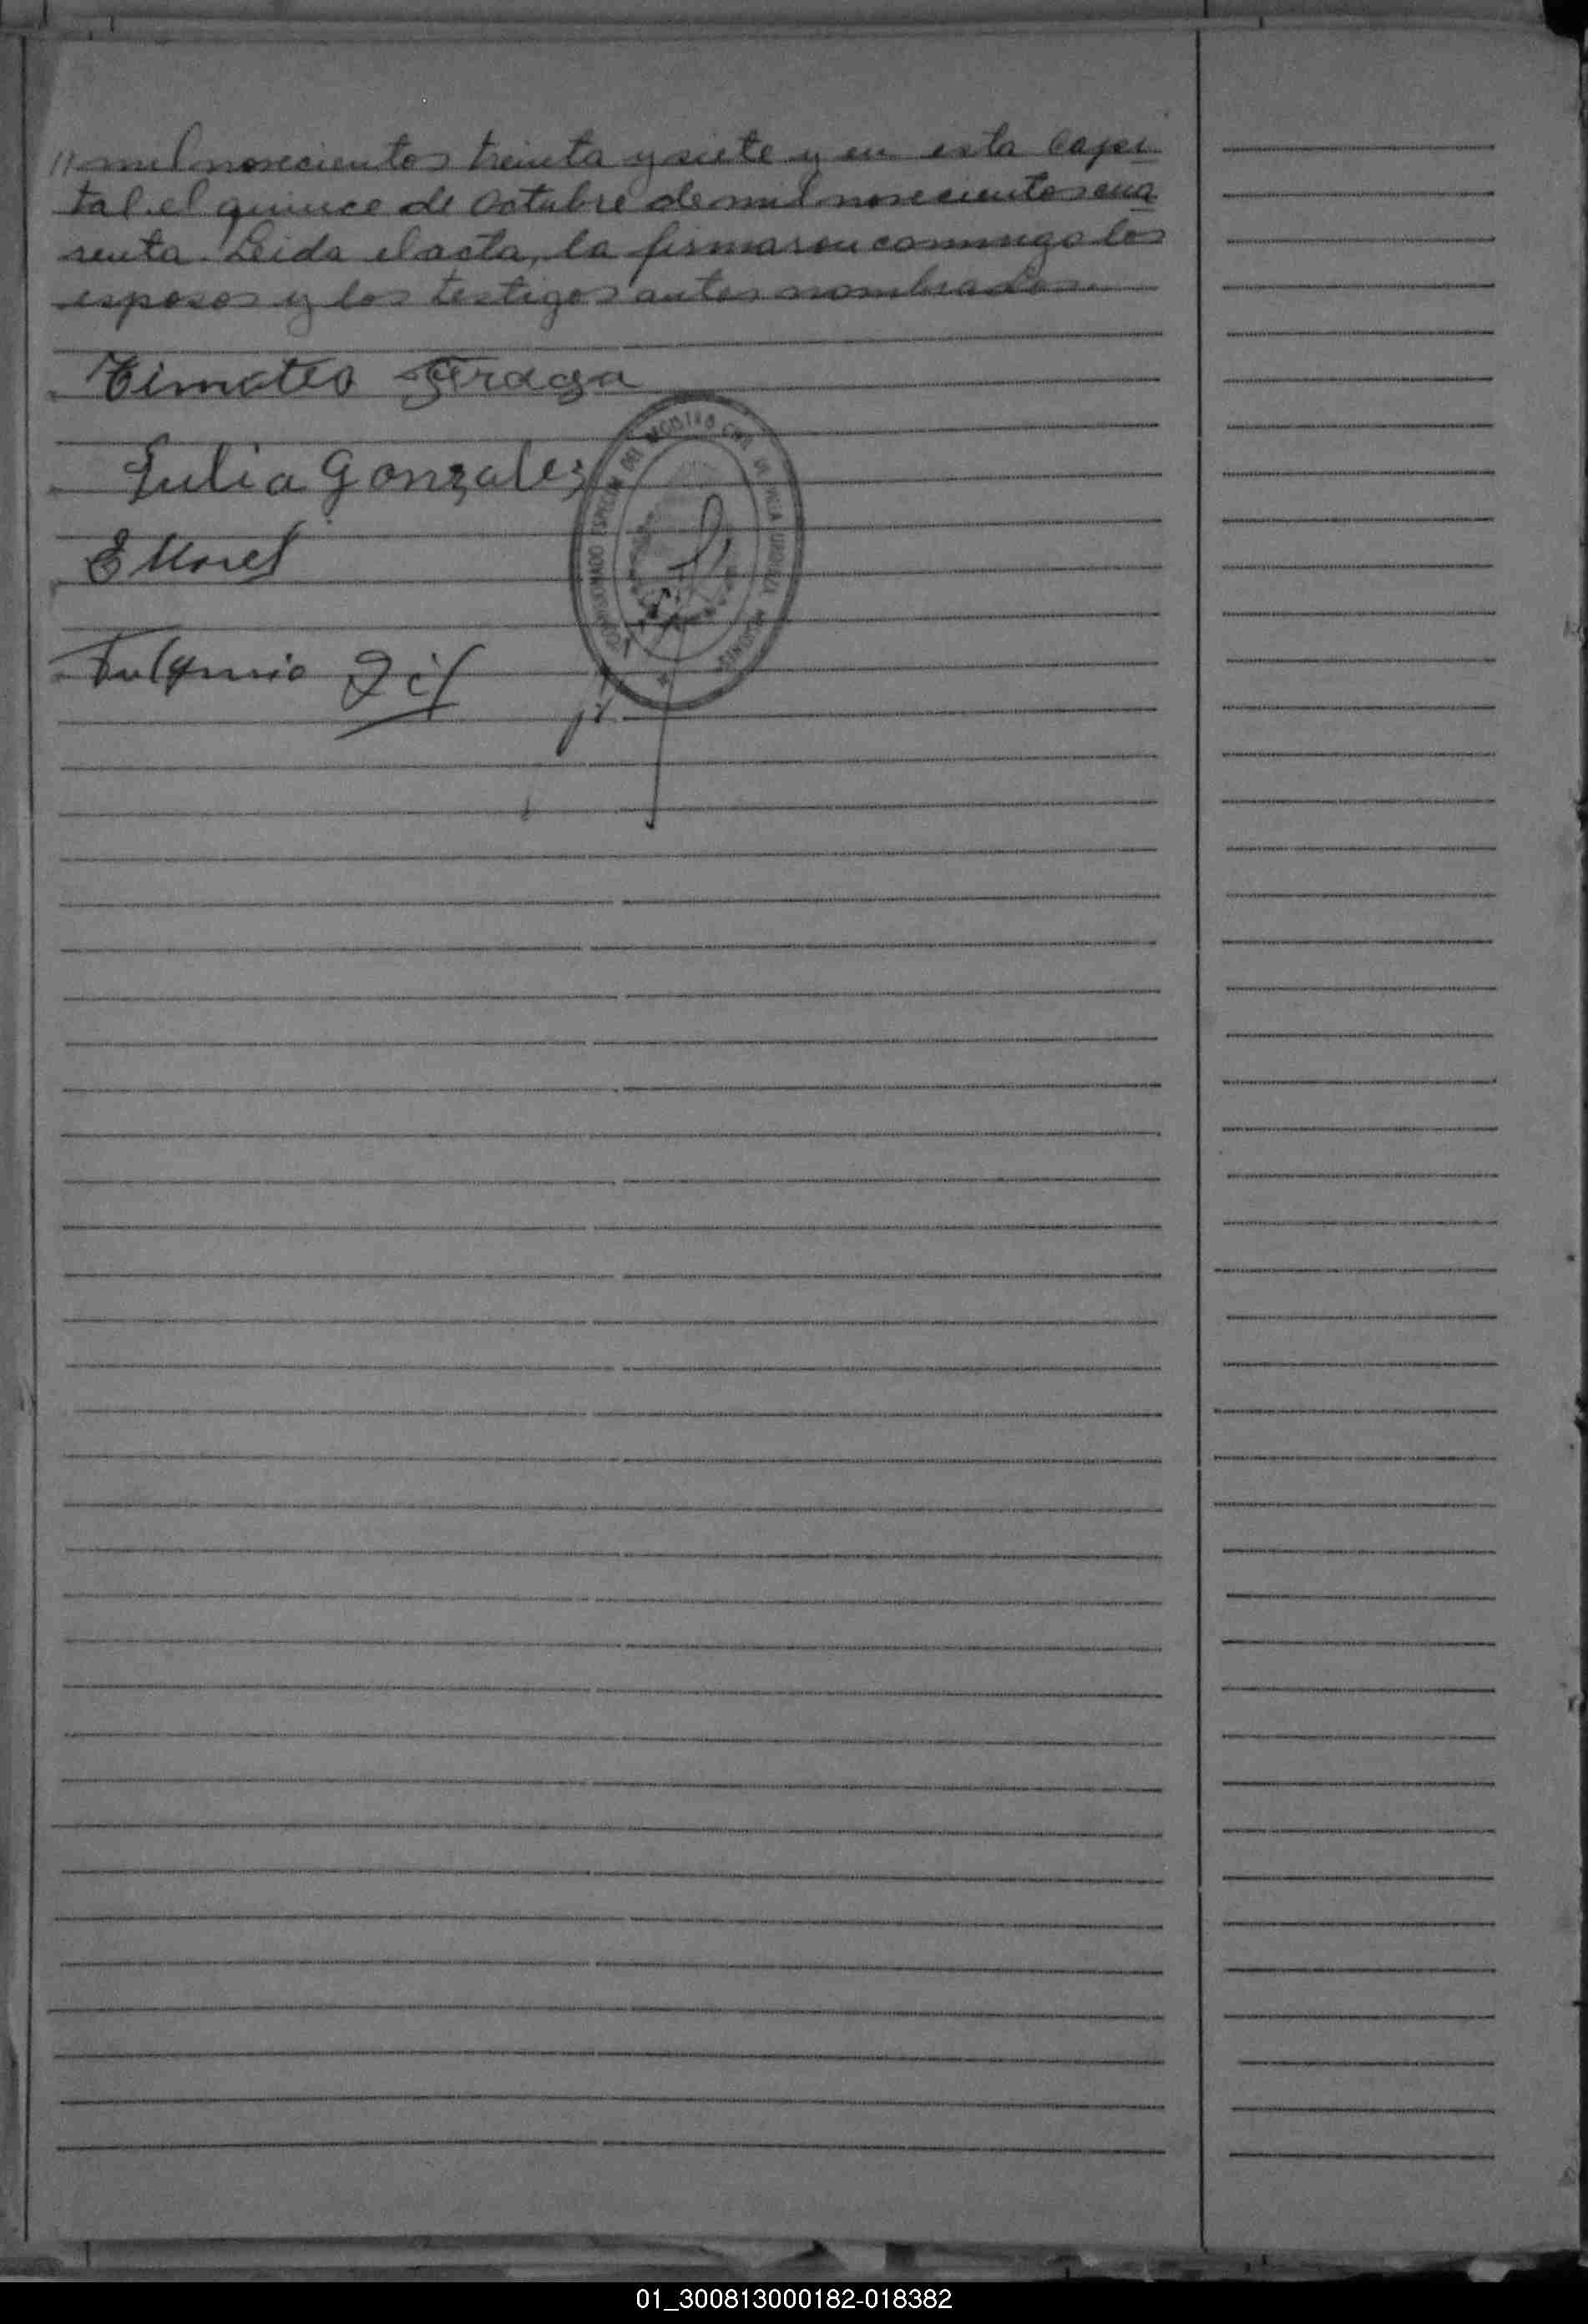 // mil novecientos treinta y siete y en esta Capi
tal el quince de Octubre de mil novecientos cua
renta. Leida el acta, la firmaron conmigo los
esposos y los testigos antes nombrados.
Timoteo Fraga
Julia Gonzalez
E Morel
Fulgencio Gil
ENCARGADO ESPECIAL DEL REGISTRO CIVIL DE VILLA URQUIZA MISIONES
01_300813000182-018382